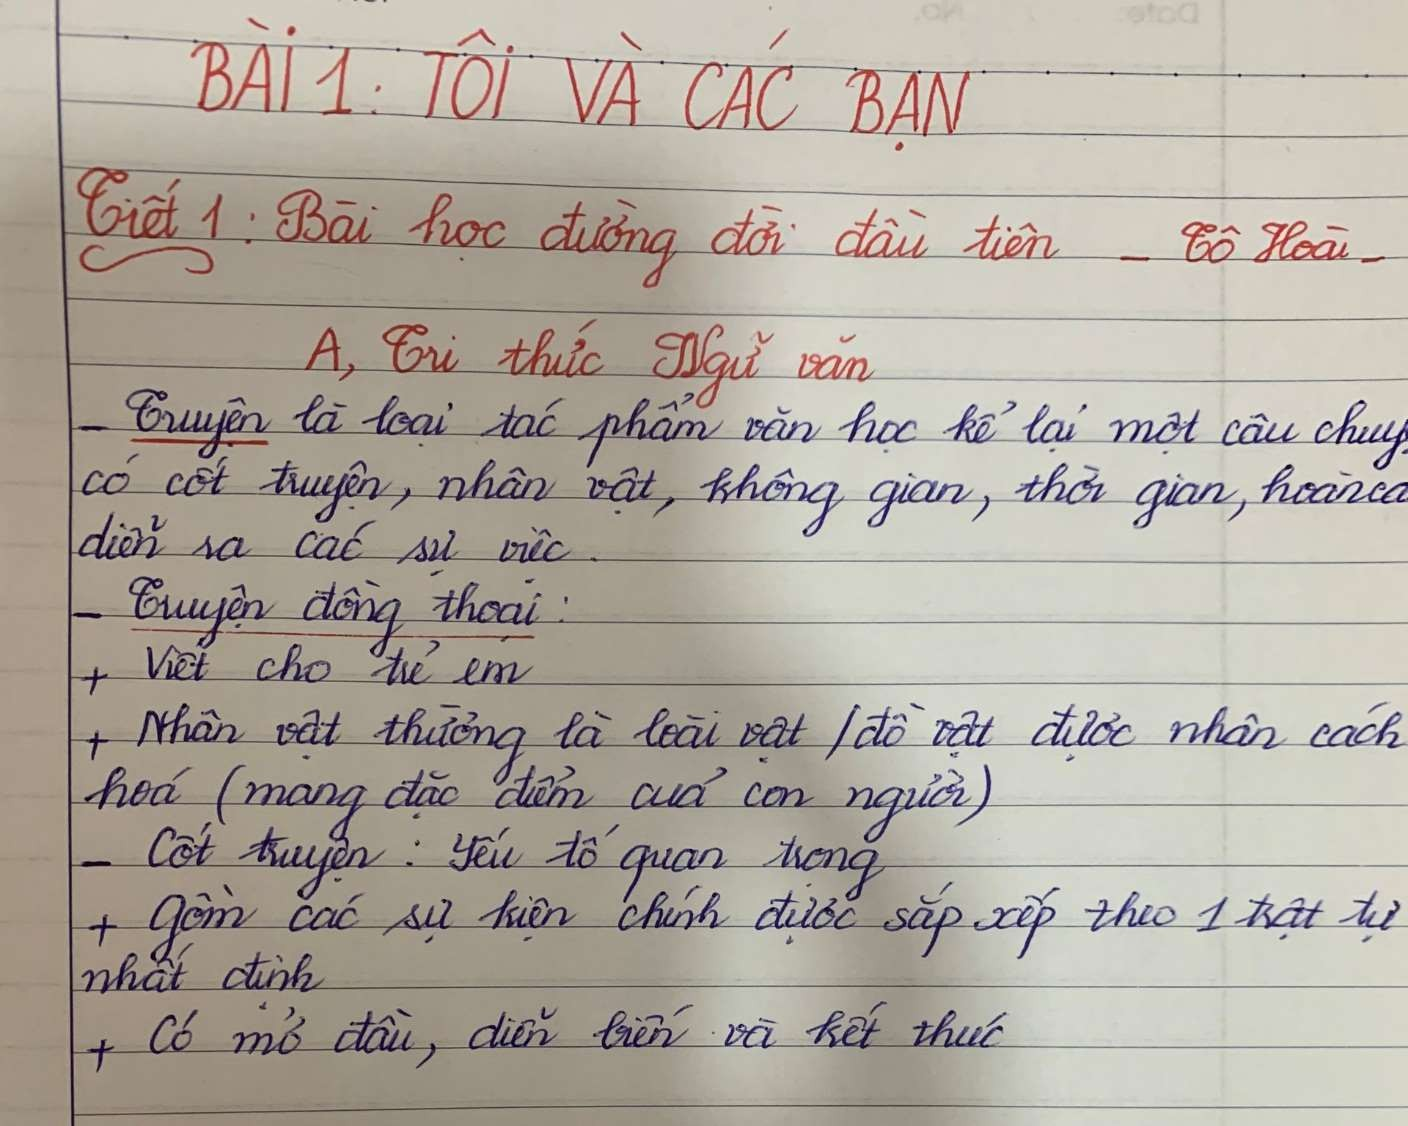 BÀI 1: TÔI VÀ CÁC BẠN
Tiết 1: Bài học đường đời đầu tiên - Tô Hoài -
A, Tri thức Ngữ văn
- Truyện là loại tác phẩm văn học kể lại một câu chuy
có cốt truyện, nhân vật, không gian, thời gian, hoàn cả
diễn ra các sự việc.
- Truyện đồng thoại:
+ Viết cho trẻ em
+ Nhân vật thường là loài vật / đồ vật được nhân cách
hoá (mang đặc điểm của con người)
- Cốt truyện: Yếu tố quan trọng
+ Gồm các sự kiện chính được sắp xếp theo 1 trật tự
nhất định
+ Có mở đầu, diễn biến và kết thúc